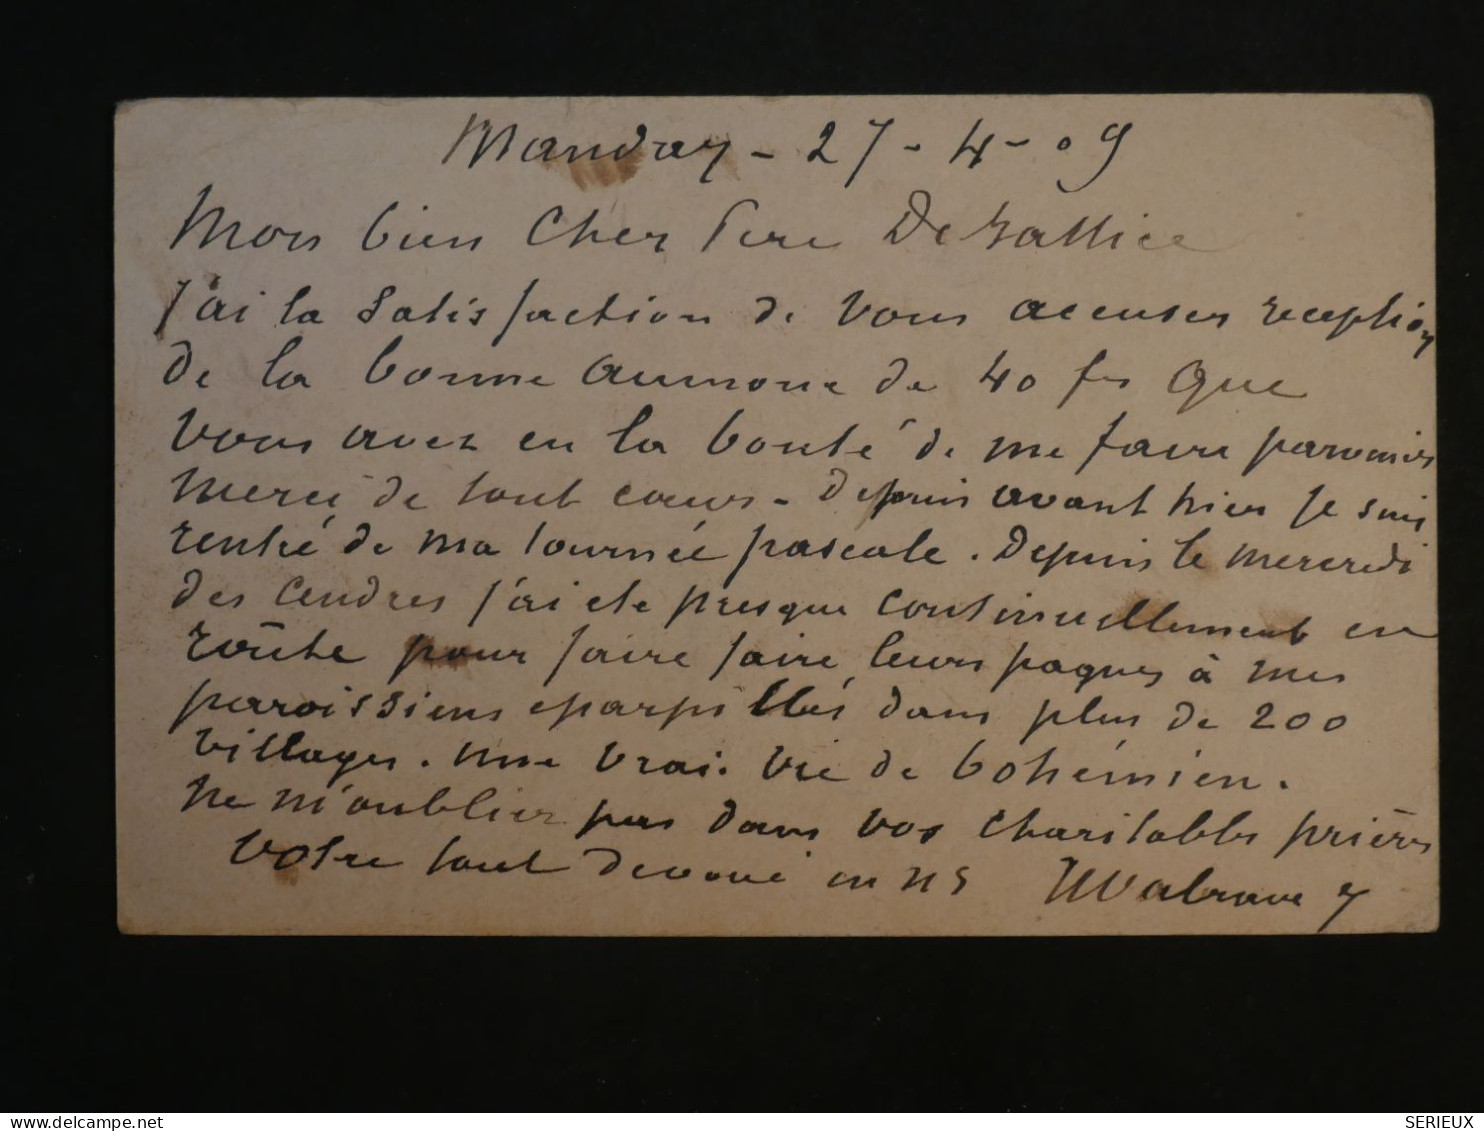 Manday - 27 - 4 - 09
Mon bien Cher Pere
J'ai la satisfaction de vous accuser reception
de la bonne aumone de 40 frs que
vous avez eu la bonté de me faire parvenir
Merci de tout coeur - Depuis avant hier je suis
rentré de ma tournée pascale. Depuis le mercredi
des cendres j'ai ete presque continuellement en
route pour faire faire leurs paques à mes
paroissiens eparpillés dans plus de 200
villages. une vrai vie de bohémien.
Ne m'oubliez pas dans vos charitables prières
Votre tout devoué en NS
SERIEUX
delcampe.net